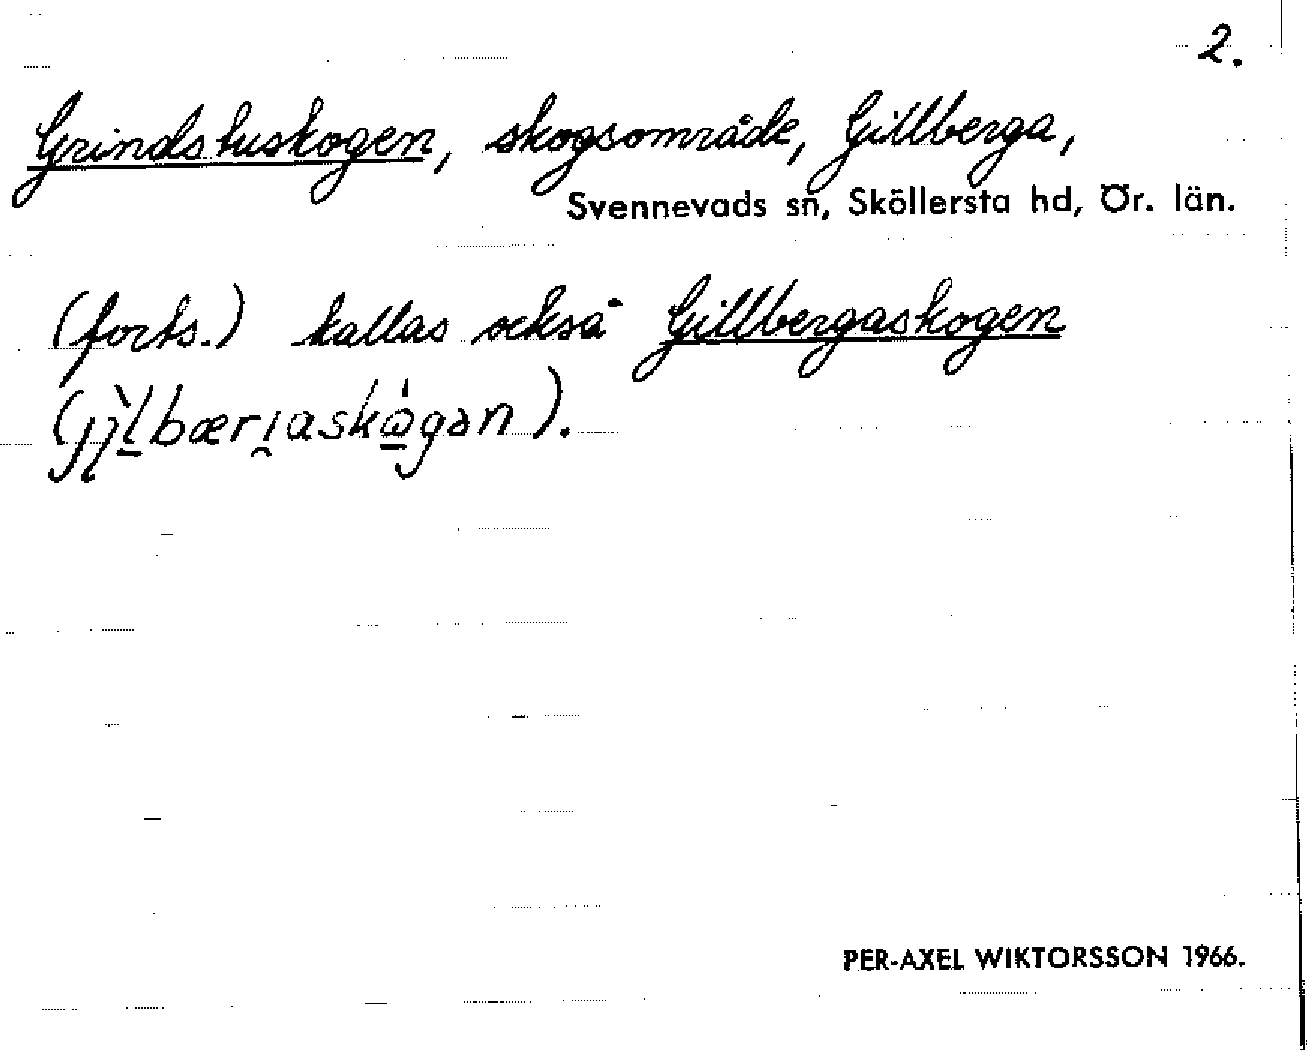 2.
Grindstuskogen, skogsområde, Gillberga,
Svennevads sn, Sköllersta hd, Ör. län.
(forts.) kallas också Gillbergaskogen
PER-AXEL WIKTORSSON 1966.